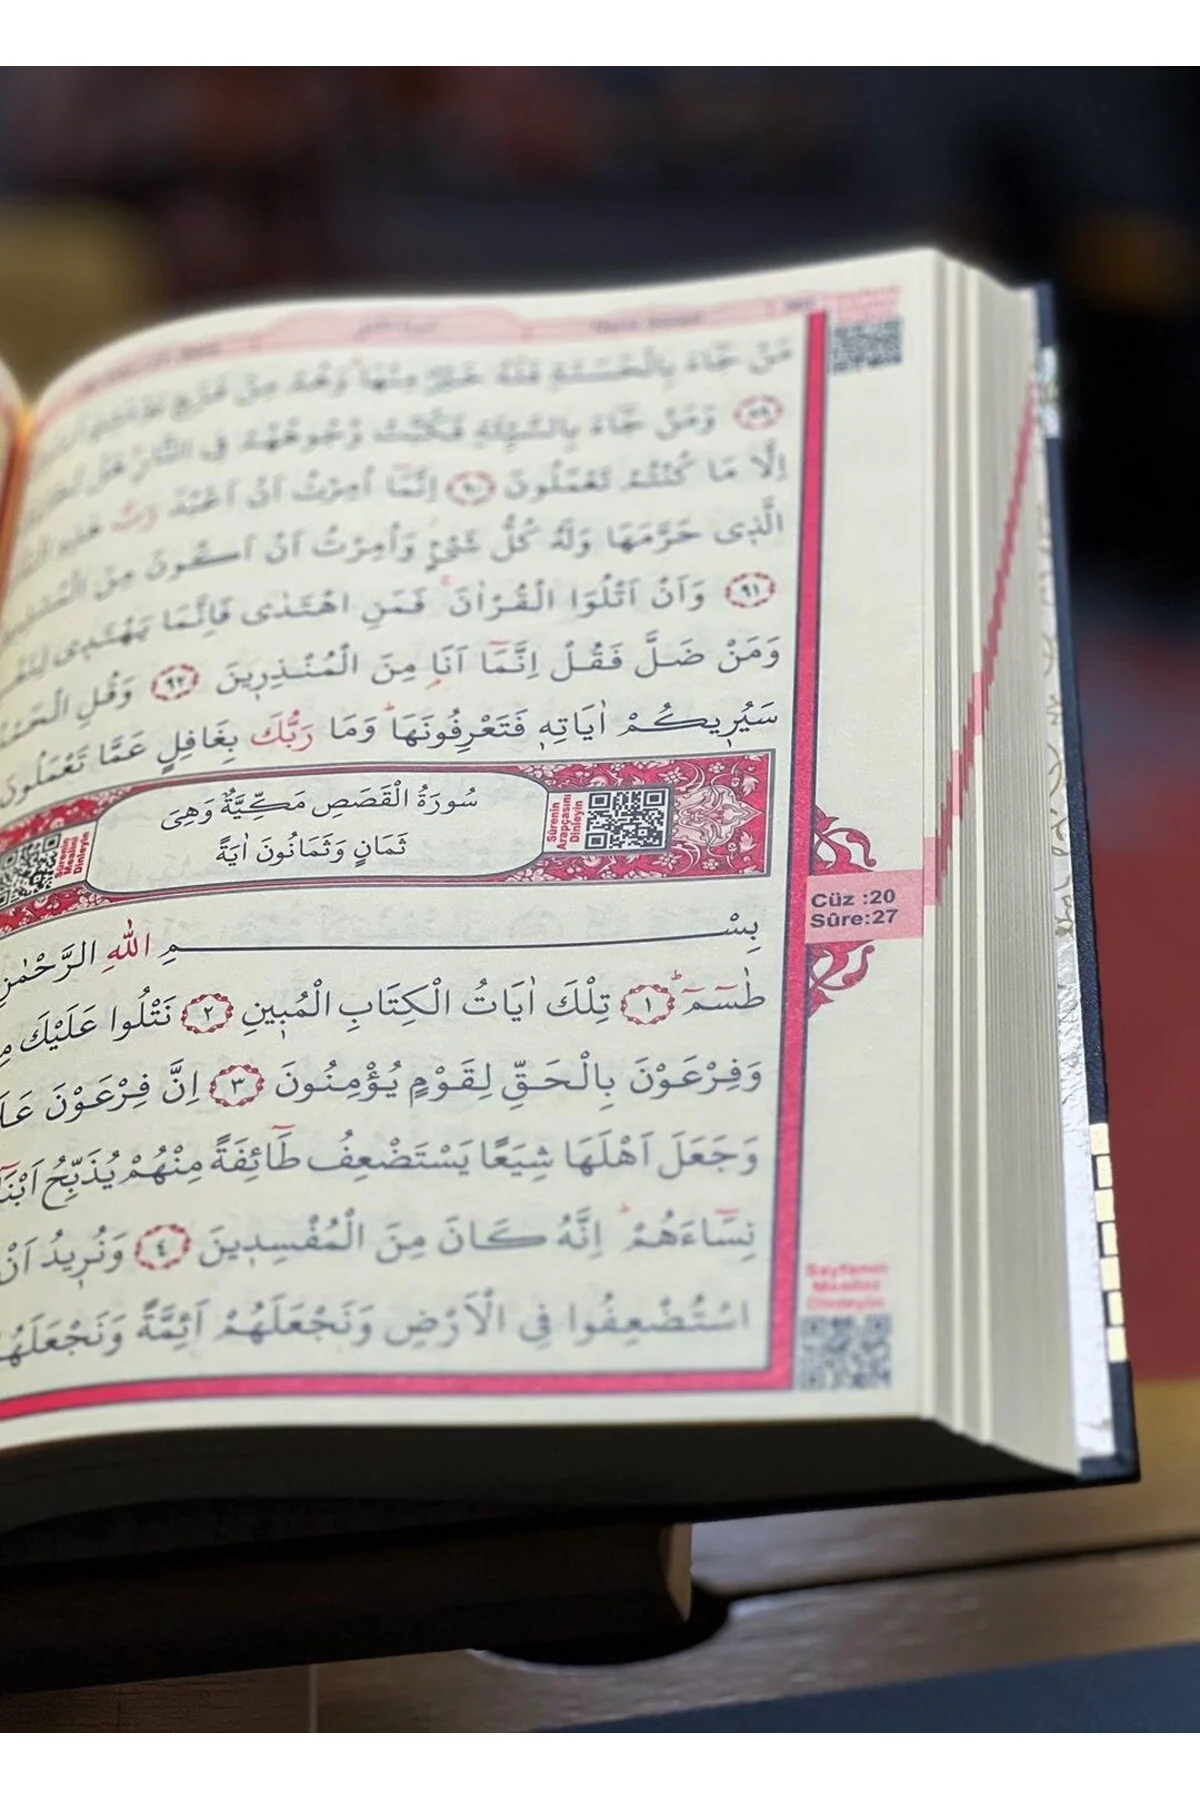 مَنْ جَاءَ بِالْحَسَنَةِ فَلَهُ خَيْرٌ مِنْهَا وَهُمْ مِنْ فَزَعٍ يَوْمَئِذٍ
﴿٨٩﴾ وَمَنْ جَاءَ بِالسَّيِّئَةِ فَكُبَّتْ وُجُوهُهُمْ فِي النَّارِ هَلْ
اِلَّا مَا كُنْتُمْ تَعْمَلُونَ ﴿٩٠﴾ اِنَّمَا اُمِرْتُ اَنْ اَعْبُدَ رَبَّ هٰذِهِ
الَّذِى حَرَّمَهَا وَلَهُ كُلُّ شَيْءٍ وَاُمِرْتُ اَنْ اَكُونَ مِنَ
﴿٩١﴾ وَاَنْ اَتْلُوَا الْقُرْاٰنَ فَمَنِ اهْتَدٰى فَاِنَّمَا يَهْتَدِى
وَمَنْ ضَلَّ فَقُلْ اِنَّمَا اَنَا مِنَ الْمُنْذِرِينَ ﴿٩٢﴾ وَقُلِ
سَيُرِيكُمْ اٰيَاتِهِ فَتَعْرِفُونَهَا وَمَا رَبُّكَ بِغَافِلٍ عَمَّا تَعْمَلُونَ
سُورَةُ الْقَصَصِ مَكِّيَّةٌ وَهِىَ
ثَمَانٍ وَثَمَانُونَ اٰيَةً
Sûrenin
Arapçasını
Dinleyin
Sûrenin
Mealini
Dinleyin
Cüz :20
Sûre:27
بِسْمِ اللّٰهِ الرَّحْمٰنِ
طٰسٓمٓ ﴿١﴾ تِلْكَ اٰيَاتُ الْكِتَابِ الْمُبِينِ ﴿٢﴾ نَتْلُوا عَلَيْكَ
وَفِرْعَوْنَ بِالْحَقِّ لِقَوْمٍ يُؤْمِنُونَ ﴿٣﴾ اِنَّ فِرْعَوْنَ
وَجَعَلَ اَهْلَهَا شِيَعًا يَسْتَضْعِفُ طَائِفَةً مِنْهُمْ يُذَبِّحُ
نِسَاءَهُمْ اِنَّهُ كَانَ مِنَ الْمُفْسِدِينَ ﴿٤﴾ وَنُرِيدُ اَنْ
اسْتُضْعِفُوا فِي الْاَرْضِ وَنَجْعَلَهُمْ اَئِمَّةً
Sayfanın
Mealini
Dinleyin